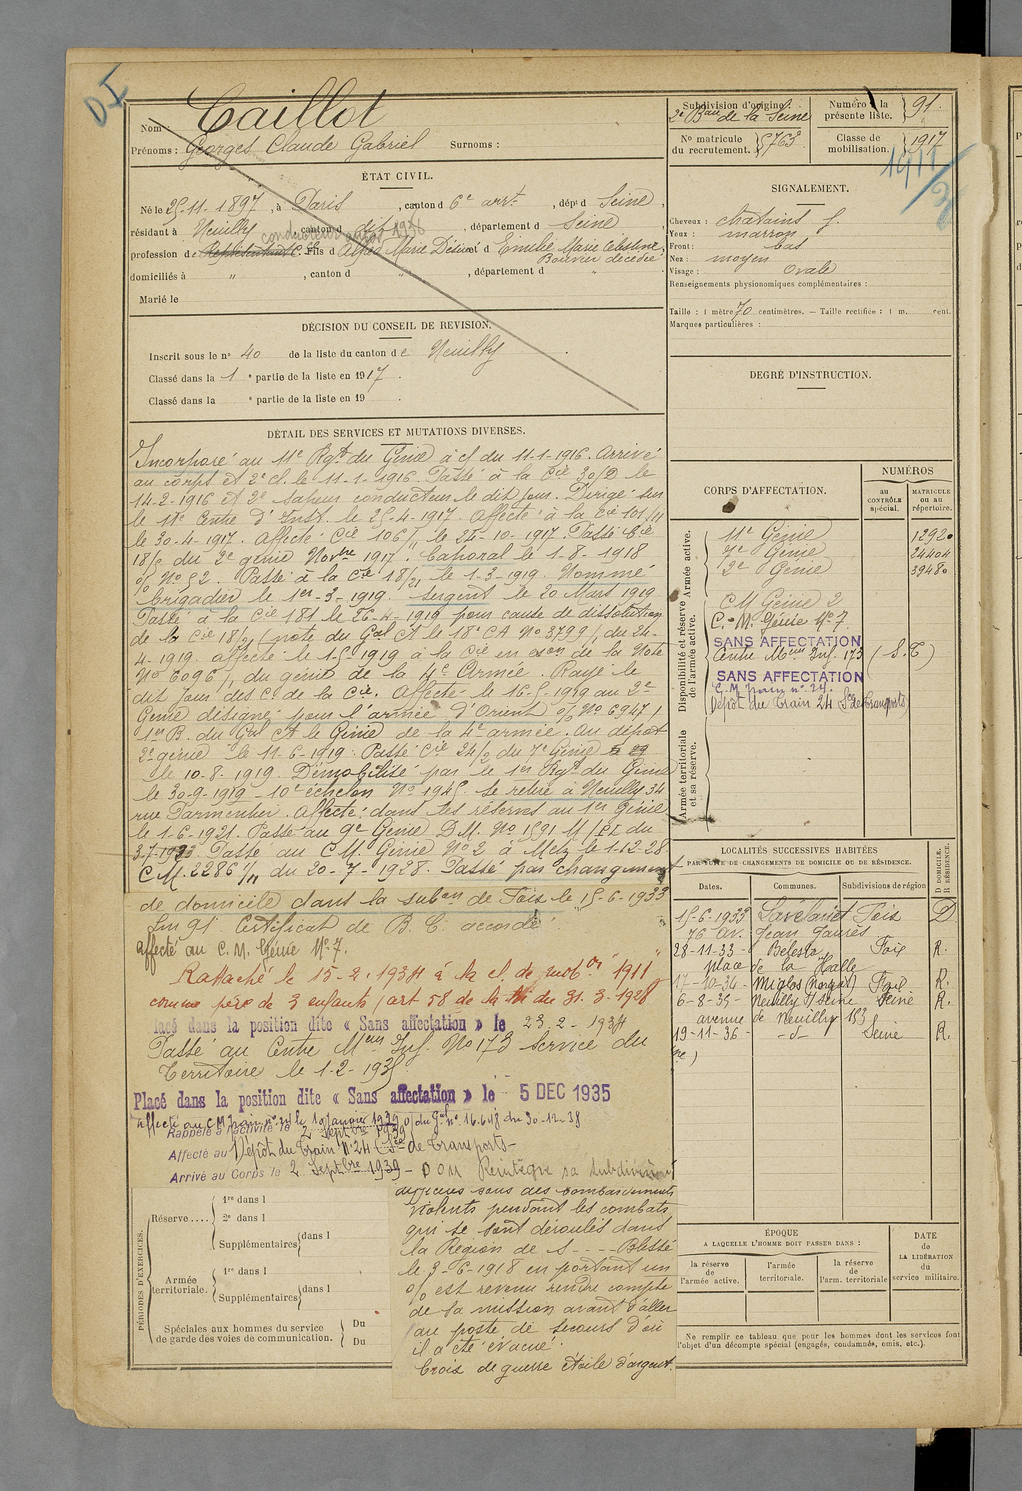 DI
Nom : Caillot
Prénoms : Georges Claude Gabriel Surnoms :
ÉTAT CIVIL.
Né le 25-11-1897, à Paris, canton d 6e arrt, dépt d Seine,
résidant à Neuilly, canton d dit, département d Seine,
profession de Représentant C. Fils d Alfred Marie Désiré et d Emilie Marie Célestine
conducteur 1928
Bouvier décédée
domiciliés à " , canton d " , département d "
Marié le
DÉCISION DU CONSEIL DE REVISION.
Inscrit sous le no 40 de la liste du canton de Neuilly
Classé dans la 1e partie de la liste en 1917.
Classé dans la e partie de la liste en 19 .
DÉTAIL DES SERVICES ET MUTATIONS DIVERSES.
Incorporé au 11e Rgt du Génie à c/ du 11-1-1916. Arrivé
au corps et 2e cl. le 11-1-1916. Passé à la Cie 30/D le
14-2-1916 et 2e sapeur conducteur le dit jour. Dirigé sur
le 11e Centre d'Inst. le 25-4-1917. Affecté à la Cie 101/11
le 30-4-1917. Affecté Cie 106/ le 24-10-1917. Passé Cie
18/ du 2e génie Novbre 1917. Caporal le 1-8-1918
o/ No 52. Passé à la Cie 18/21 le 1-3-1919. Nommé
brigadier le 1er-3-1919. Sergent le 20 Mars 1919
Passé à la Cie 181 le 26-4-1919 pour cause de dissolution
de la Cie 18/21 (note du Gal Ct le 18e CA No 3799/, du 24-
4-1919. Affecté le 1-5-1919 à la Cie en exon de la Note
No 6096/, du génie de la 4e Armée. Rayé le
dit jour des C. de la Cie. Affecté le 16-5-1919 au 2e
Génie désigné pour l'armée d'Orient o/ No 6947/
1er B. du Gal Ct le Génie de la 4e armée. Au dépôt
2e génie le 11-6-1919. Passé Cie 24/ du 7e Génie
le 10-8-1919. Démobilisé par le 1er Rgt du Génie
le 30-9-1919 - 10e échelon No 1945. Se retire à Neuilly 34
rue Parmentier. Affecté dans les réserves au 1er Génie
le 1-6-1921. Passé au 9e Génie D.M. No 1591 M/ du
3-7-1923. Passé au C.M. Génie No 2 à Metz le 1-12-28
C.M. 2286 1/11 du 20-7-1928. Passé par changement
de domicile dans la subon de Foix le 15-6-1933
Lin 91 Certificat de B. C. accordé.
affecté au C. M. Génie No 7.
Rattaché le 15-2-1934 à la cl de mobon 1911
comme père de 3 enfants (art 58 de la loi du 31.3-1928
lacé dans la position dite « Sans affectation » le 23.2-1934
Passé au Centre Meur Inf. No 173 Service du
Territoire le 1-2-1935
Placé dans la position dite « Sans affectation » le 5 DEC 1935
affecté au C M Train no 24 le 1er Janvier 1939 o/ du Gal no 16.648 du 30-12-38
Rappelé à l'activité le 2 Septbre 1939
Affecté au Dépôt du Train No 24 (Son de Transports-
Arrivé au Corps le 2 Septbre 1939 - DOM Réintègre sa subdivision
difficiles sous des bombardements
violents pendant les combats
qui se sont déroulés dans
la Région de S---- Blessé
le 3-6-1918 en portant un
o/ est revenu rendre compte
de sa mission avant d'aller
au poste de secours d'où
il a été évacué.
Croix de guerre étoile d'argent.
PÉRIODES D'EXERCICES.
Réserve....
1re dans l
2e dans l
Supplémentaires dans l
Armée territoriale.
1re dans l
Supplémentaires dans l
Spéciales aux hommes du service de garde des voies de communication.
Du
Du
Subdivision d'origine :
2e Bau de la Seine
Numéro à la présente liste. 91.
No matricule du recrutement. 5763
Classe de mobilisation. 1917
1911
SIGNALEMENT.
Cheveux : chatains f.
Yeux : marron
Front : bas
Nez : moyen
Visage : ovale
Renseignements physionomiques complémentaires :
Taille : 1 mètre 70 centimètres. — Taille rectifiée : 1 m. cent.
Marques particulières :
DEGRÉ D'INSTRUCTION.
CORPS D'AFFECTATION.
NUMÉROS
au CONTRÔLE spécial.
MATRICULE ou au répertoire.
Armée active.
11e Génie 12920
7e Génie 24404
2e Génie 39480
Disponibilité et réserve de l'armée active.
CM Génie 2
C. M. Génie No 7.
SANS AFFECTATION
Centre Meur Inf. 173 (S.T)
SANS AFFECTATION
C.M Train no 24.
Dépôt du Train 24 Son de Transports)
Armée territoriale et sa réserve.
LOCALITÉS SUCCESSIVES HABITÉES
PAR SUITE DE CHANGEMENTS DE DOMICILE OU DE RÉSIDENCE.
Dates. Communes. Subdivisions de région
D DOMICILE. R RÉSIDENCE.
15-6-1933 Lavelanet Foix D
76 av. Jean Jaurès
28-11-33- Belesta Foix R.
place de la Halle
17-10-34- Miglos (Norgeat) Foix R.
6-8-35- Neuilly s/Seine Seine R.
avenue de Neuilly 153
19-11-36- -d- Seine R.
ÉPOQUE
A LAQUELLE L'HOMME DOIT PASSER DANS :
DATE de LA LIBÉRATION du service militaire.
la réserve de l'armée active.
l'armée territoriale.
la réserve de l'arm. territoriale
Ne remplir ce tableau que pour les hommes dont les services font
l'objet d'un décompte spécial (engagés, condamnés, omis, etc.).